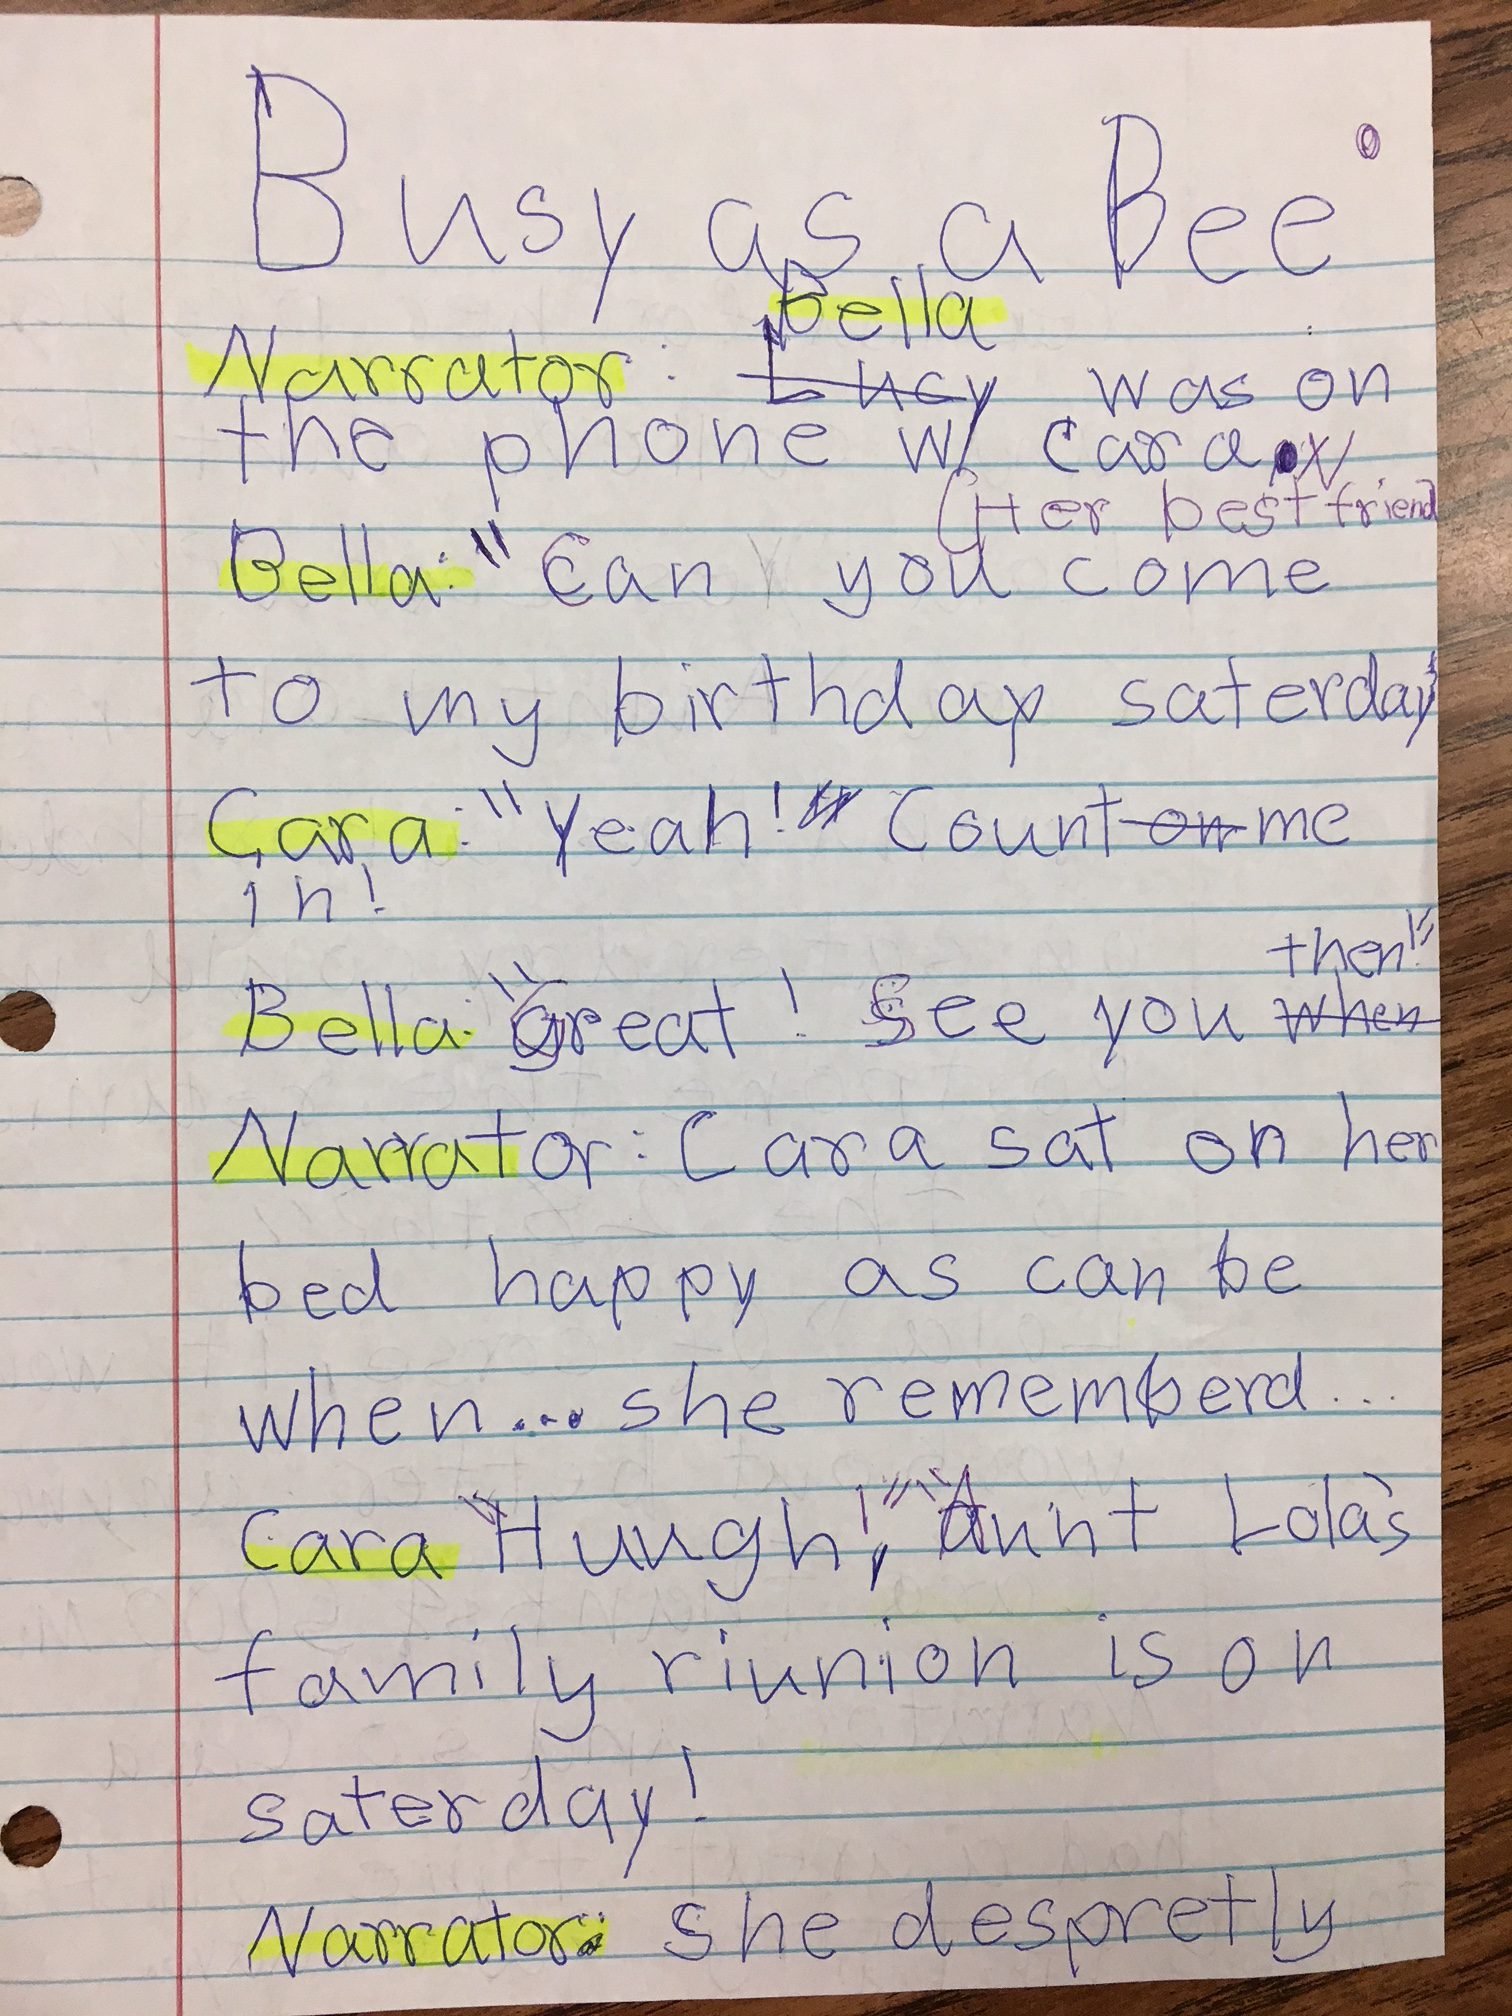 Busy as a Bee
Bella
Narrator: Lucy was on
the phone w/ Cara.
(Her best friend
Bella: "Can you come
to my birthday saterday
Cara: "Yeah!" Count on me
in!
then!"
Bella: "Great! See you when
Narrator: Cara sat on her
bed happy as can be
when... she rememberd...
Cara "Huugh!," "Aunt Lola's
family riunion is on
saterday!
Narrator: She despretly